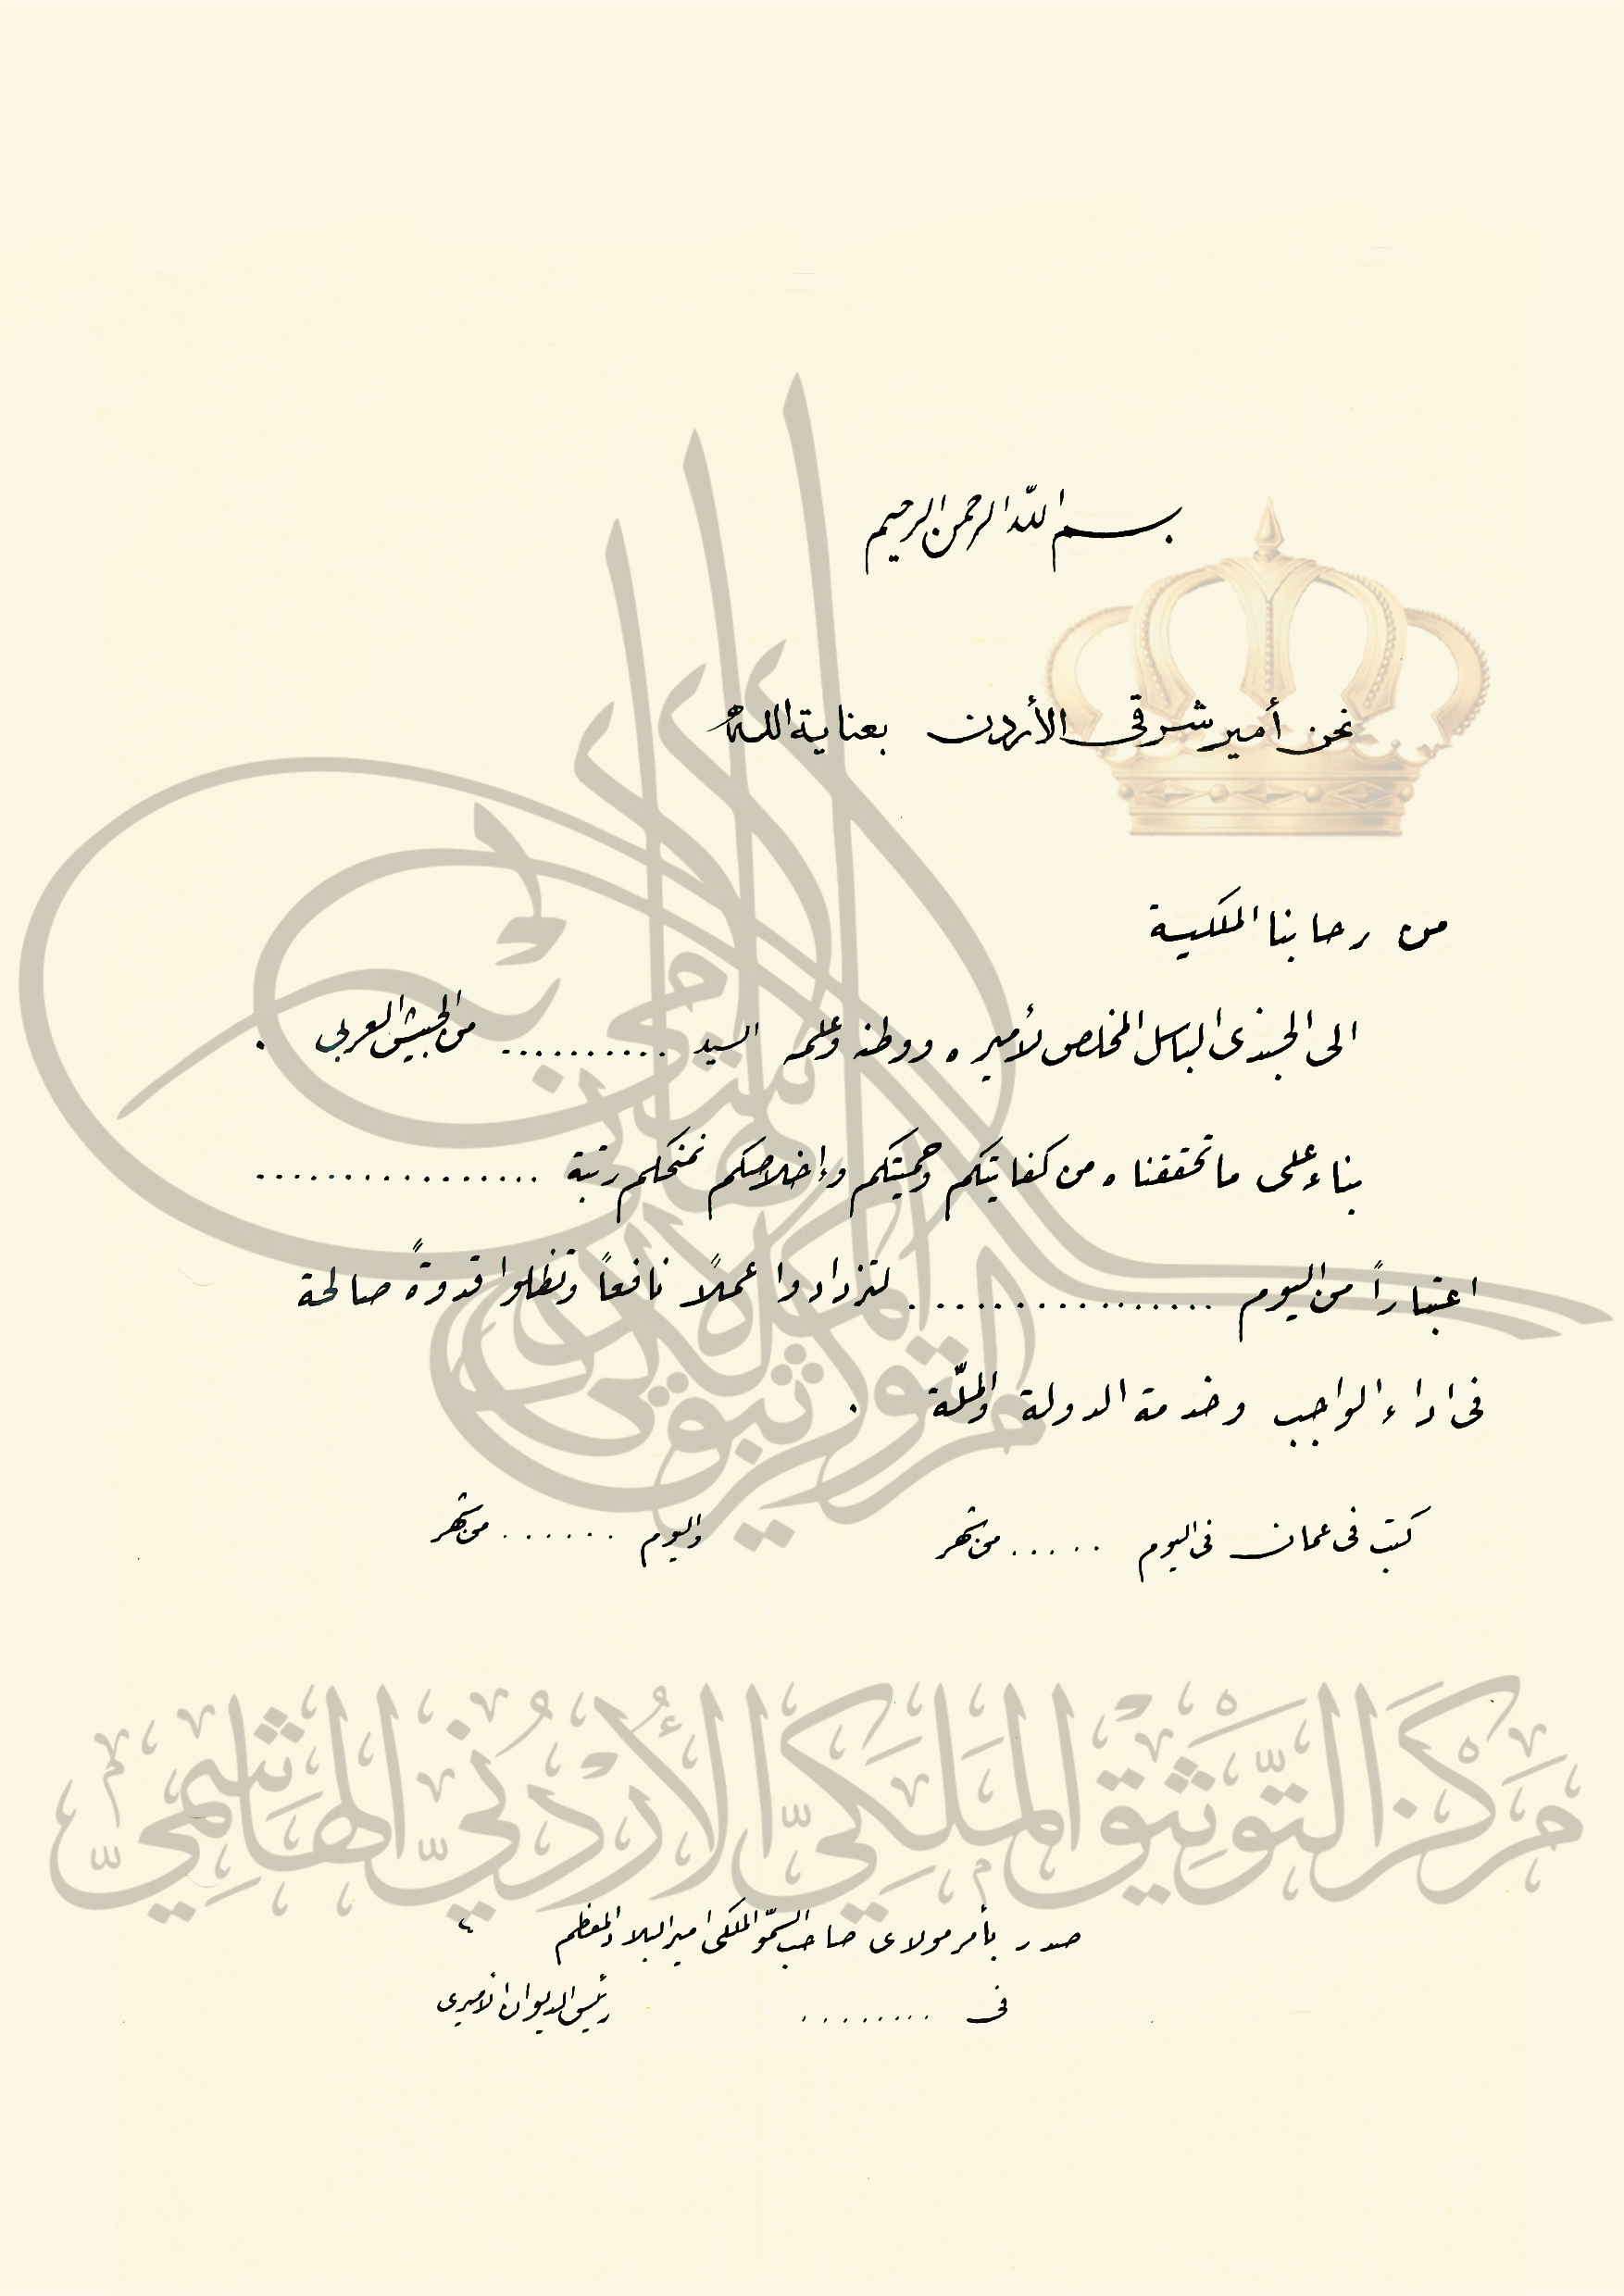 بسم الله الرحمن الرحيم
نحن أمير شرقي الأردن بعناية الله
من رحابنا الملكية
الى الجندى الباسل المخلص لأميره ووطنه وعلمه السيد .......... من الجيش العربى .
بناء على ما تحققناه من كفايتكم وحميتكم وإخلاصكم نمنحكم رتبة .................
اعتباراً من اليوم ................. لتزدادوا عملاً نافعاً وتظلوا قدوةً صالحة
فى اداء الواجب وخدمة الدولة والملّة .
كتب فى عمان فى اليوم ..... من شهر واليوم ...... من شهر
مركز التوثيق الملكي الأردني الهاشمي
صدر بأمر مولاى صاحب السمّو الملكى امير البلاد المعظم
فى ........ رئيس الديوان الأميرى